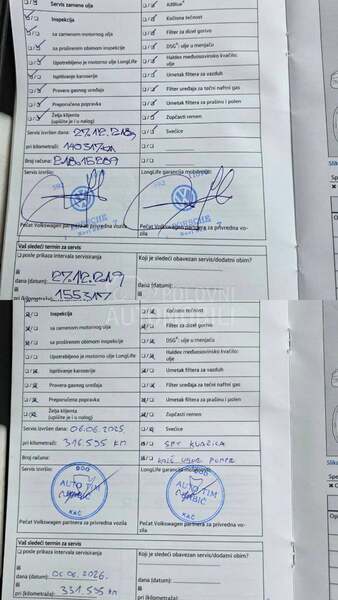 Servis zamene ulja
AdBlue®
Inspekcija
Kočiona tečnost
sa zamenom motornog ulja
Filter za dizel gorivo
sa proširenim obimom inspekcije
DSG®: ulje u menjaču
Upotrebljeno je motorno ulje LongLife
Haldex međuosovinsko kvačilo: ulje
Ispitivanje karoserije
Umetak filtera za vazduh
Provera gasnog uređaja
Filter uređaja za tečni naftni gas
Preporučena popravka
Umetak filtera za prašinu i polen
Želja klijenta
(upišite je i u nalog)
Zupčasti remen
Servis izvršen dana: 27.12.2018
Svećice
pri kilometraži: 140317 km
Broj računa: 218-15289
Servis izvršio:
LongLife garancija mobilnosti:
PORSCHE
Pečat Volkswagen partnera za privredna vozila
Pečat Volkswagen partnera za privredna vozila
Vaš sledeći termin za servis
posle prikaza intervala servisiranja
Koji je sledeći obavezan servis/dodatni obim?
ili
dana (datum): 27.12.2019
ili
155317
POLOVNI
AUTOMOBILI
Inspekcija
Kočiona tečnost
sa zamenom motornog ulja
Filter za dizel gorivo
sa proširenim obimom inspekcije
DSG®: ulje u menjaču
Upotrebljeno je motorno ulje LongLife
Haldex međuosovinsko kvačilo: ulje
Ispitivanje karoserije
Umetak filtera za vazduh
Provera gasnog uređaja
Filter uređaja za tečni naftni gas
Preporučena popravka
Umetak filtera za prašinu i polen
Želja klijenta
(upišite je i u nalog)
Zupčasti remen
Servis izvršen dana: 06.06.2025
Svećice
pri kilometraži: 316.595 km
SET KVAČILA
Broj računa:
Servis izvršio:
LongLife garancija mobilnosti:
DOO
AUTO TIM
KAĆ
DOO
AUTO TIM
KAĆ
Pečat Volkswagen partnera za privredna vozila
Pečat Volkswagen partnera za privredna vozila
Vaš sledeći termin za servis
posle prikaza intervala servisiranja
Koji je sledeći obavezan servis/dodatni obim?
ili
dana (datum): 06.06.2026.
dana (datum):
ili
pri (kilometraža): 331.595 km
pri (kilometraža):